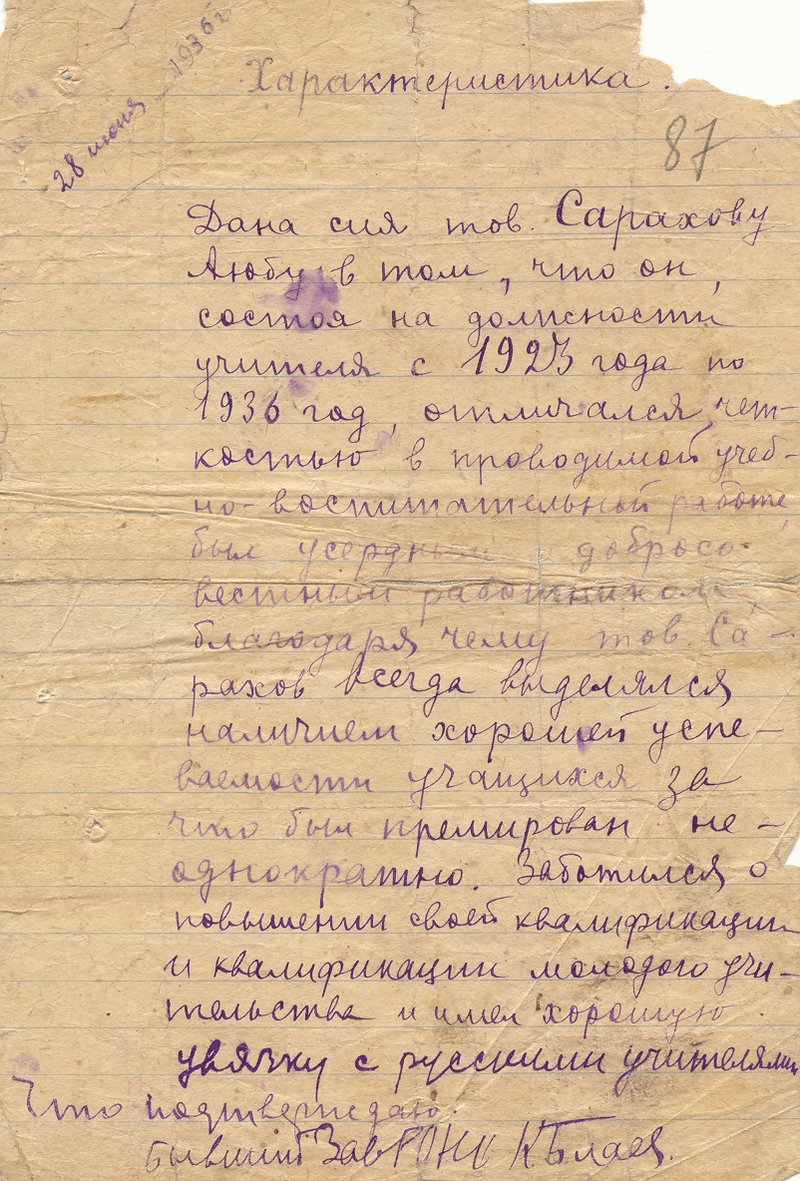 Характеристика.
28 июня 1936 г
87
Дана сия тов. Сарахову
Аюбу в том, что он,
состоя на должности
учителя с 1923 года по
1936 год, отличался чет-
костью в проводимой учеб-
но-воспитательной работе,
был усердным и добросо-
вестным работником,
благодаря чему тов. Са-
рахов всегда выделялся
наличием хорошей успе-
ваемости учащихся за
что был премирован не-
однократно. Заботился о
повышении своей квалификации
и квалификации молодого учи-
тельства и имел хорошую
увязку с русскими учителями
Что подтверждаю.
бывший Зав